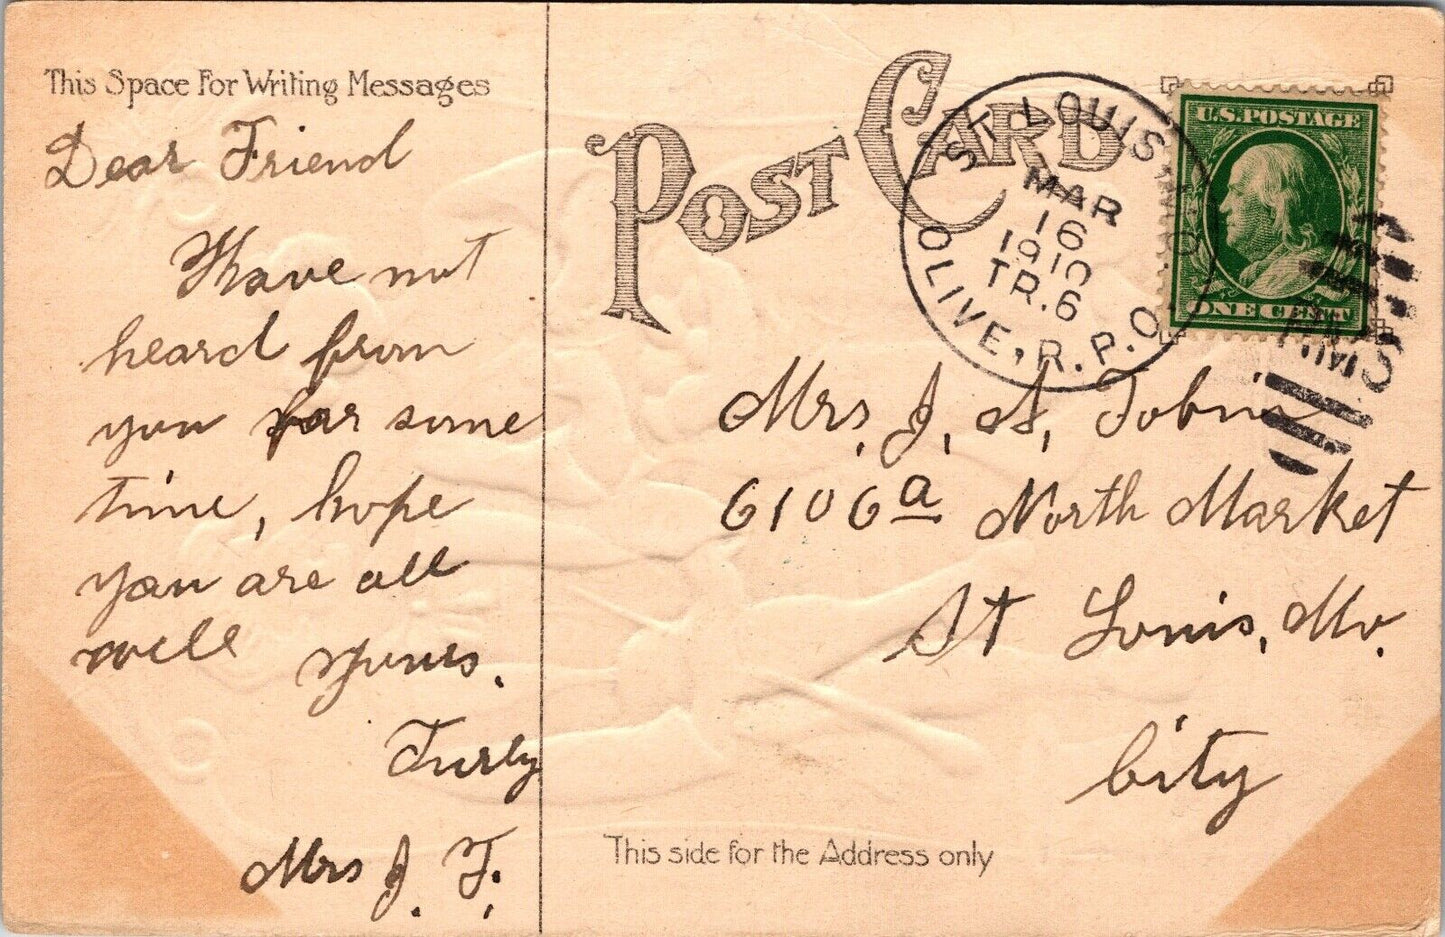 This Space For Writing Messages
Dear Friend
Have not
heard from
you for some
time, hope
you are all
well yours.
Turly
Mrs J. F.
POST CARD
ST. LOUIS
MAR
16
1910
TR. 6
OLIVE, R.P.O.
U.S. POSTAGE
ONE CENT
RMS
Mrs, J, A, Tobin
6106a North Market
St Louis, Mo.
City
This side for the Address only